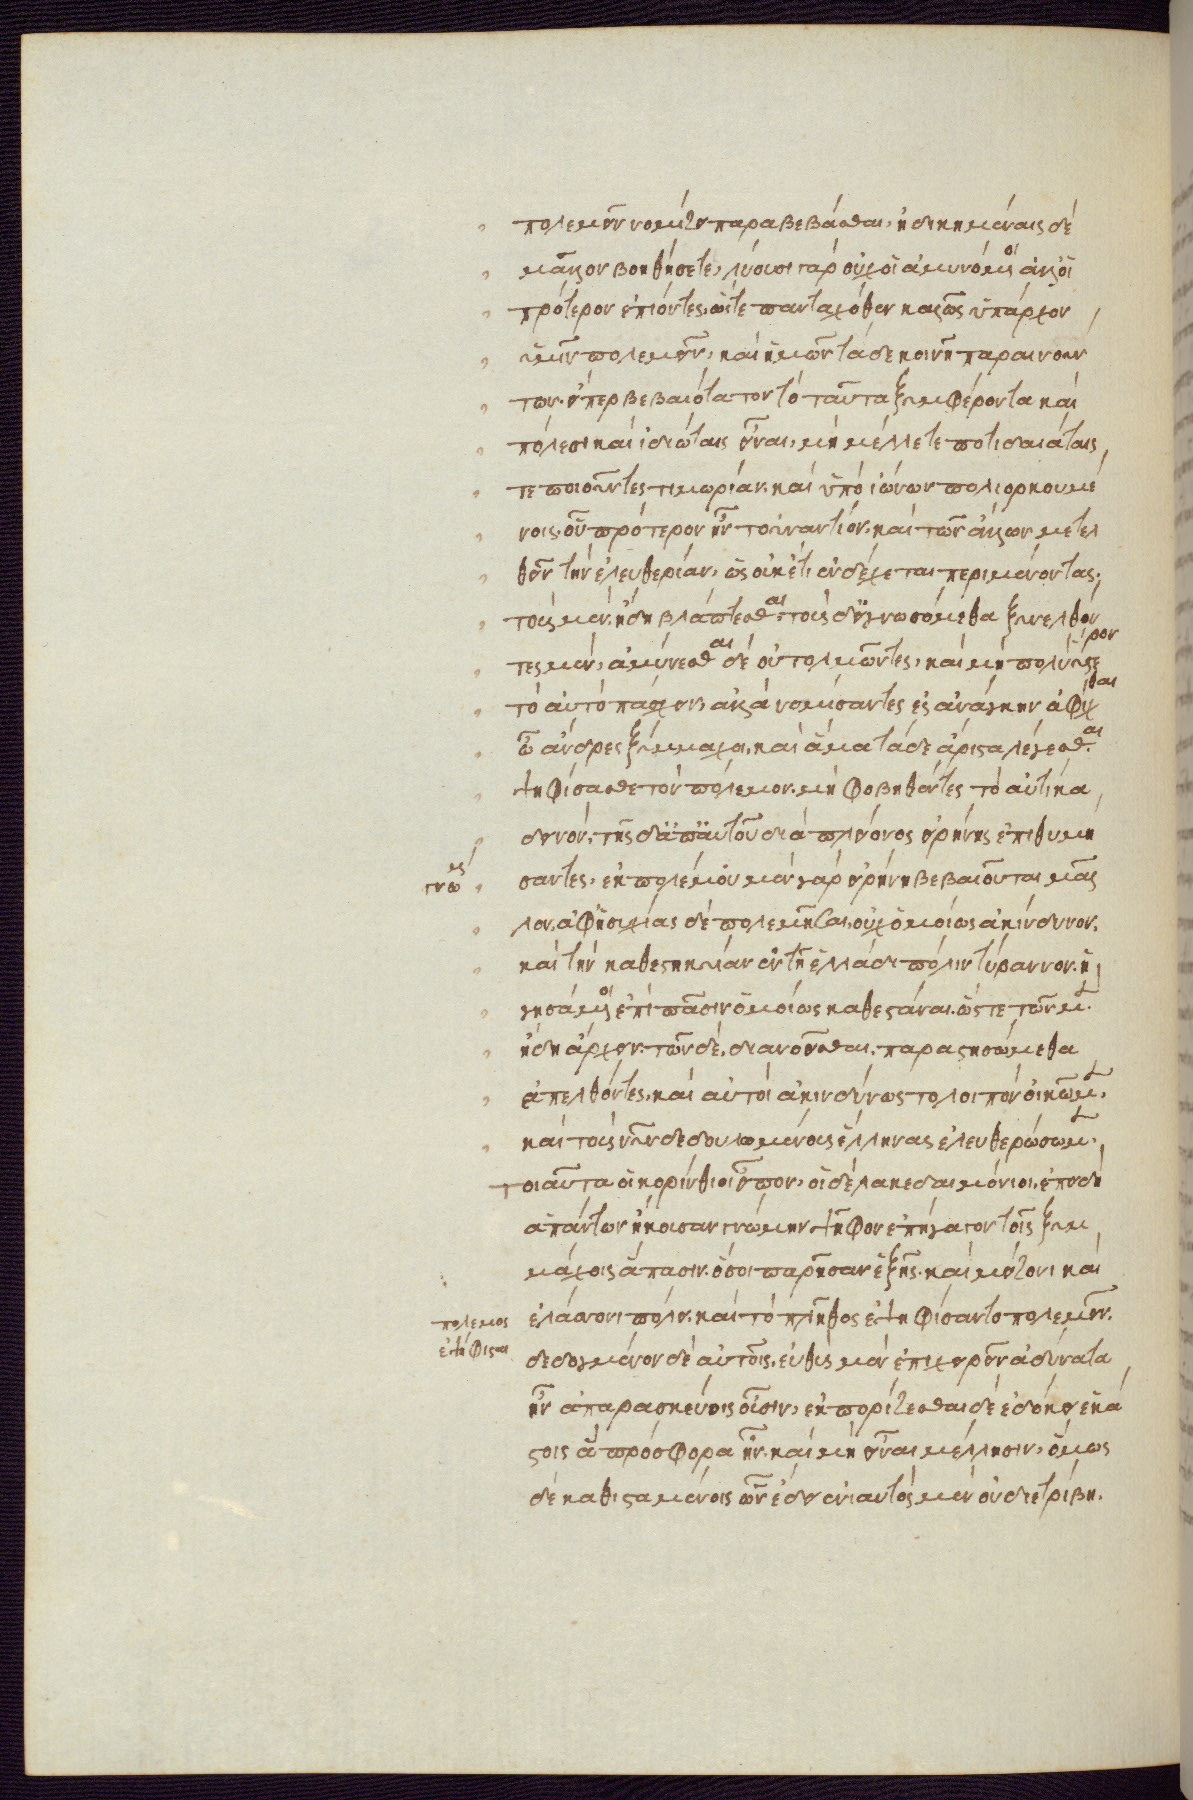 πολεμεῖν νομίζει παραβεβάσθαι, ἠδικημέναις δὲ
μᾶλλον βοηθήσετε, λύουσι γὰρ οὐχ οἱ ἀμυνόμενοι ἀλλ' οἱ
πρότερον ἐπιόντες, ὥστε πανταχόθεν καλῶς ὑπάρχον
ὑμῖν πολεμεῖν, καὶ ἡμῶν τάδε κοινῇ παραινούν
των, εἴπερ βεβαιότατον τὸ ταῦτα ξυμφέροντα καὶ
πόλεσι καὶ ἰδιώταις εἶναι, μὴ μέλλετε ποτιδαιάταις
τε ποιεῖσθαι τιμωρίαν, καὶ ὑπὸ ἰώνων πολιορκουμέ
νοις, οὗ πρότερον ἦν τοὐναντίον, καὶ τῶν ἄλλων μετελ
θεῖν τὴν ἐλευθερίαν, ὡς οὐκέτι ἐνδέχεται περιμένοντας,
τοὺς μὲν ἤδη βλάπτεσθαι, τοὺς δ' εἰ γνωσόμεθα ξυνελθόν
τες μὲν, ἀμύνεσθαι δὲ οὐ τολμῶντες, καὶ μὴ πολὺ ὕστερον
τὸ αὐτὸ πάσχειν, ἀλλὰ νομίσαντες ἐς ἀνάγκην ἀφῖχθαι
ὦ ἄνδρες ξύμμαχοι, καὶ ἅμα τάδε ἄριστα λέγεσθαι.
ψηφίσασθε τὸν πόλεμον, μὴ φοβηθέντες τὸ αὐτίκα
δεινόν, τῆς δ' ἀπ' αὐτοῦ διὰ πλείονος εἰρήνης ἐπιθυμή
γνώμης
σαντες, ἐκ πολέμου μὲν γὰρ εἰρήνη βεβαιοῦται μᾶλ
λον, ἀφ' ἡσυχίας δὲ πολεμῆσαι, οὐχ ὁμοίως ἀκίνδυνον,
καὶ τὴν καθεστηκυῖαν ἐν τῇ ἑλλάδι πόλιν τύραννον, ἡ
γησάμενοι ἐπὶ πᾶσιν ὁμοίως καθεστάναι, ὥστε τῶν μὲν
ἤδη ἄρχειν, τῶν δὲ, διανοεῖσθαι, παραστησώμεθα
ἐπελθόντες, καὶ αὐτοὶ ἀκινδύνως τὸ λοιπὸν οἰκῶμεν,
καὶ τοὺς νῦν δεδουλωμένους ἕλληνας ἐλευθερώσωμεν,
τοιαῦτα οἱ κορίνθιοι εἶπον, οἱ δὲ λακεδαιμόνιοι, ἐπειδὴ
ἀπάντων ἤκουσαν γνώμην ψῆφον ἐπήγαγον τοῖς ξυμ
μάχοις ἅπασιν, ὅσοι παρῆσαν ἑξῆς, καὶ μείζονι καὶ
πόλεμος
ἐψήφισται
ἐλάσσονι πόλει, καὶ τὸ πλῆθος ἐψηφίσαντο πολεμεῖν.
δεδογμένον δὲ αὐτοῖς, εὐθὺς μὲν ἐπιχειρεῖν ἀδύνατα
ἦν ἀπαρασκεύοις οὖσιν, ἐκπορίζεσθαι δὲ ἐδόκει ἑκά
στοις ἃ πρόσφορα ἦν, καὶ μὴ εἶναι μέλλησιν, ὅμως
δὲ καθισταμένοις ὧν ἔδει ἐνιαυτὸς μὲν οὐ διετρίβη.